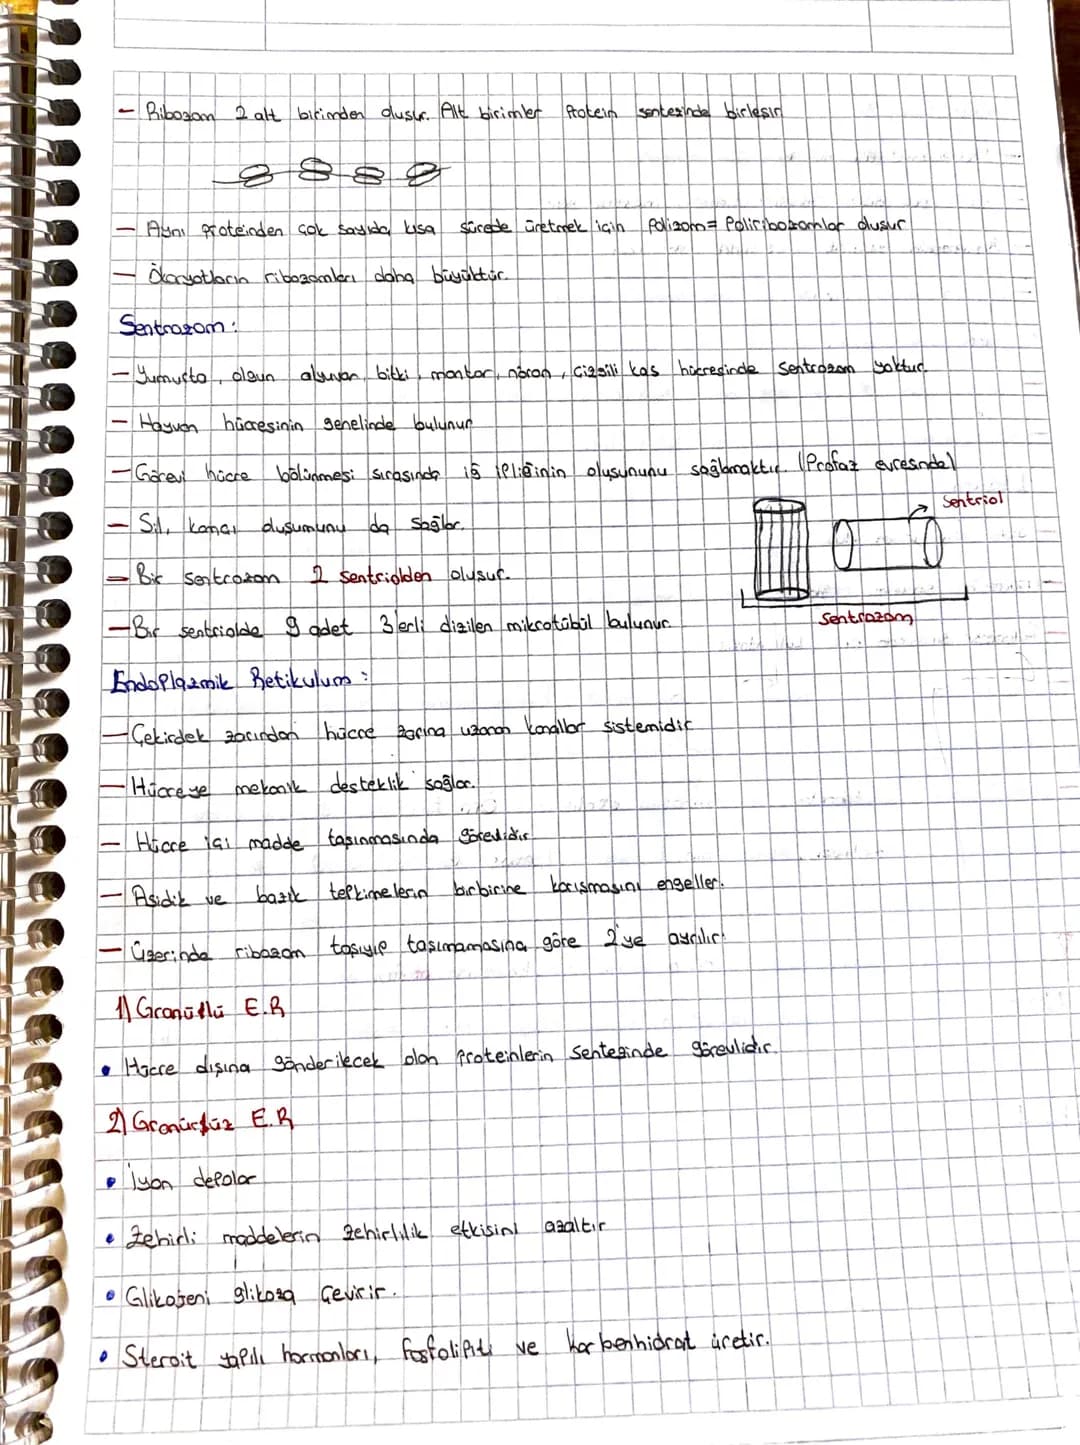 - Ribozom 2 alt birimden oluşur. Alt birimler Protein sentezinde birleşir
- Aynı proteinden çok sayıda kısa sürede üretmek için Polizom= Poliribozomlar oluşur
- Ökaryotların ribozomları daha büyüktür.
Sentrozom :
- Yumurta, olgun alyuvar, bitki, mantar, nöron, çizgili kas hücresinde sentrozom yoktur.
- Hayvan hücresinin genelinde bulunur
- Görevi hücre bölünmesi sırasında iğ ipliğinin oluşununu sağlamaktır. (Profaz evresinde)
Sentriol
- Sil, kamçı oluşumunu da sağlar.
- Bir sentrozom 2 sentriolden oluşur.
- Bir sentriolde 9 adet 3'erli dizilen mikrotübül bulunur
Sentrozom
Endoplazmik Retikulum :
- Çekirdek zarından hücre zarına uzanan kanallar sistemidir
- Hücreye mekanik desteklik sağlar.
- Hücre içi madde taşınmasında görevlidir
- Asidik ve bazik tepkimelerin birbirine karışmasını engeller.
- Üzerinde ribozom taşıyıp taşımamasına göre 2'ye ayrılır:
1) Granüllü E.R
• Hücre dışına gönderilecek olan proteinlerin sentezinde görevlidir.
2) Granürsüz E.R
• İyon depolar
• Zehirli maddelerin zehirlilik etkisini azaltır
• Glikojeni glikoza çevirir.
• Steroit yapılı hormonları, fosfolipiti ve karbenhidrat üretir.